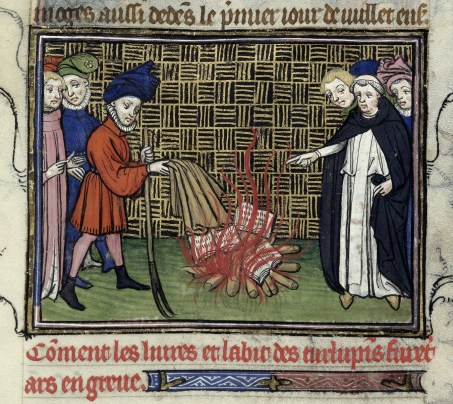 moges aussi dedẽs le pmier iour de iuillet ens
Cõment les liures et labit des turlupĩs furẽt
ars en greue.